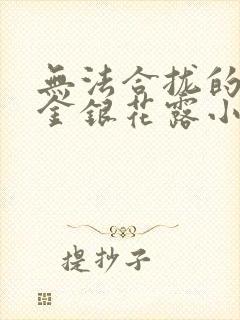 無法合拢的
金銀花露小
提抄子